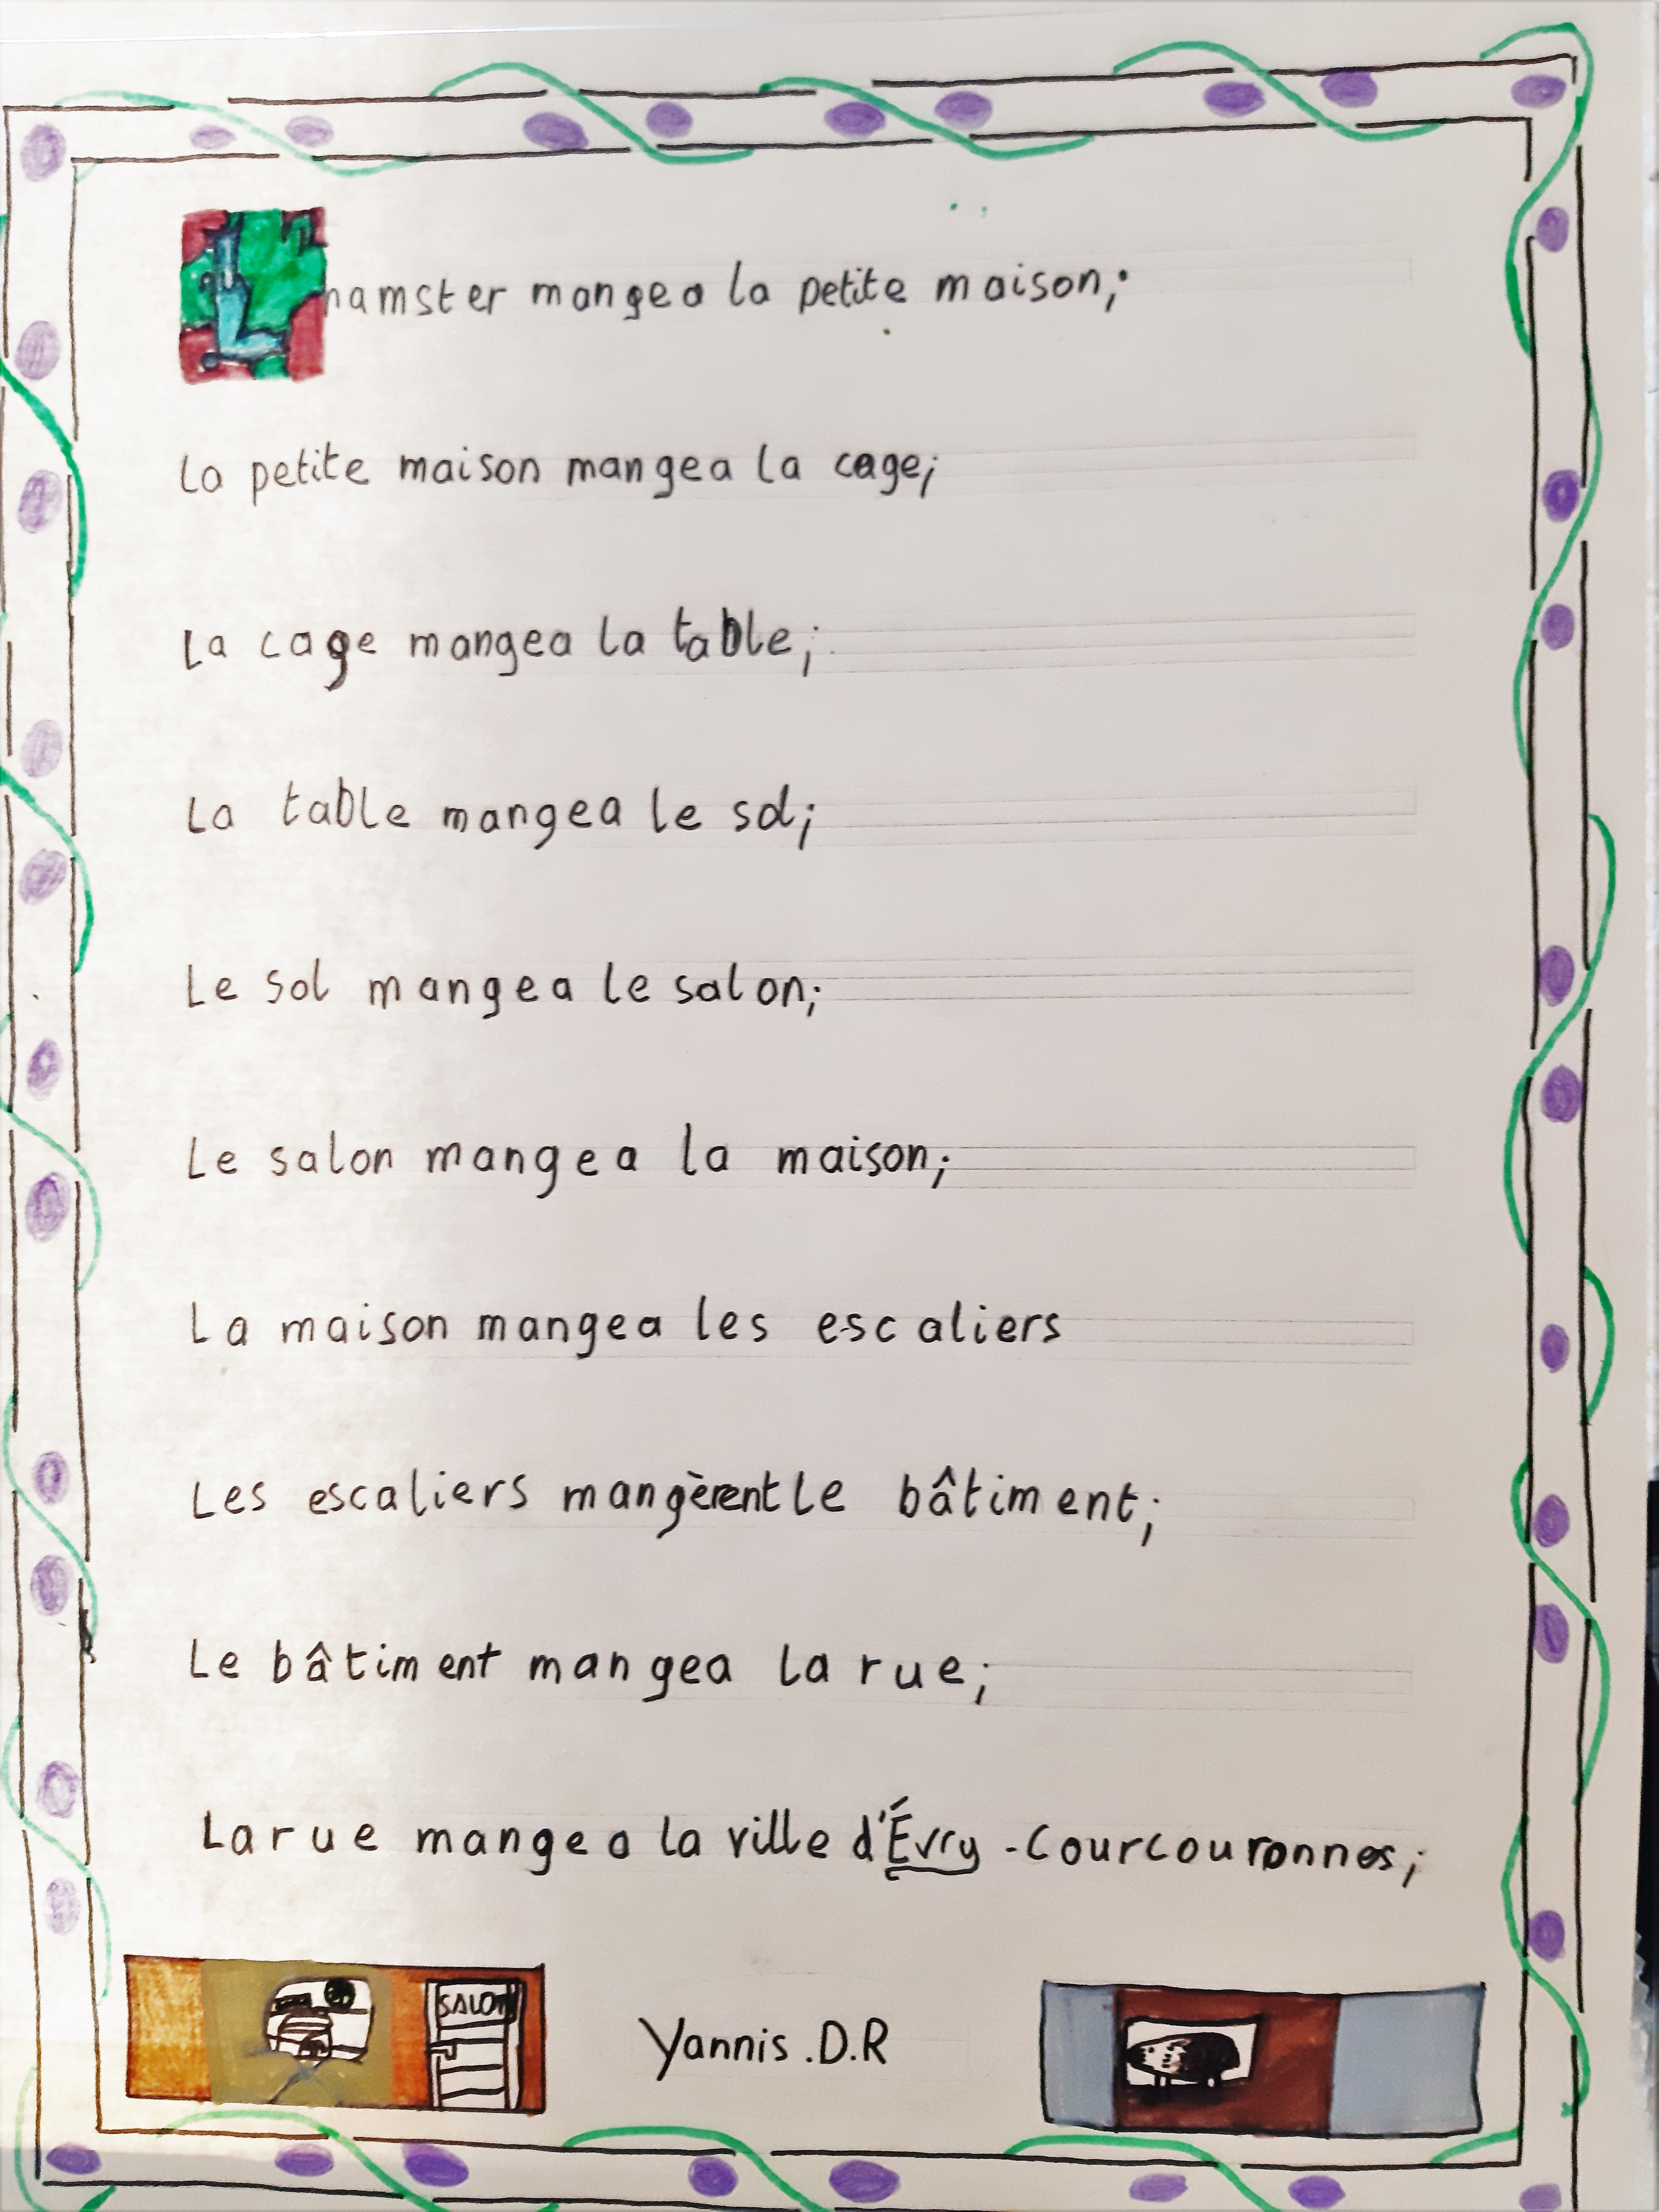 L hamster mangea la petite maison;
La petite maison mangea la cage;
La cage mangea la table;
La table mangea le sol;
Le sol mangea le salon;
Le salon mangea la maison;
La maison mangea les escaliers
Les escaliers mangèrent le bâtiment;
Le bâtiment mangea la rue;
La rue mangea la ville d'Évry-Courcouronnes;
SALON
Yannis.D.R